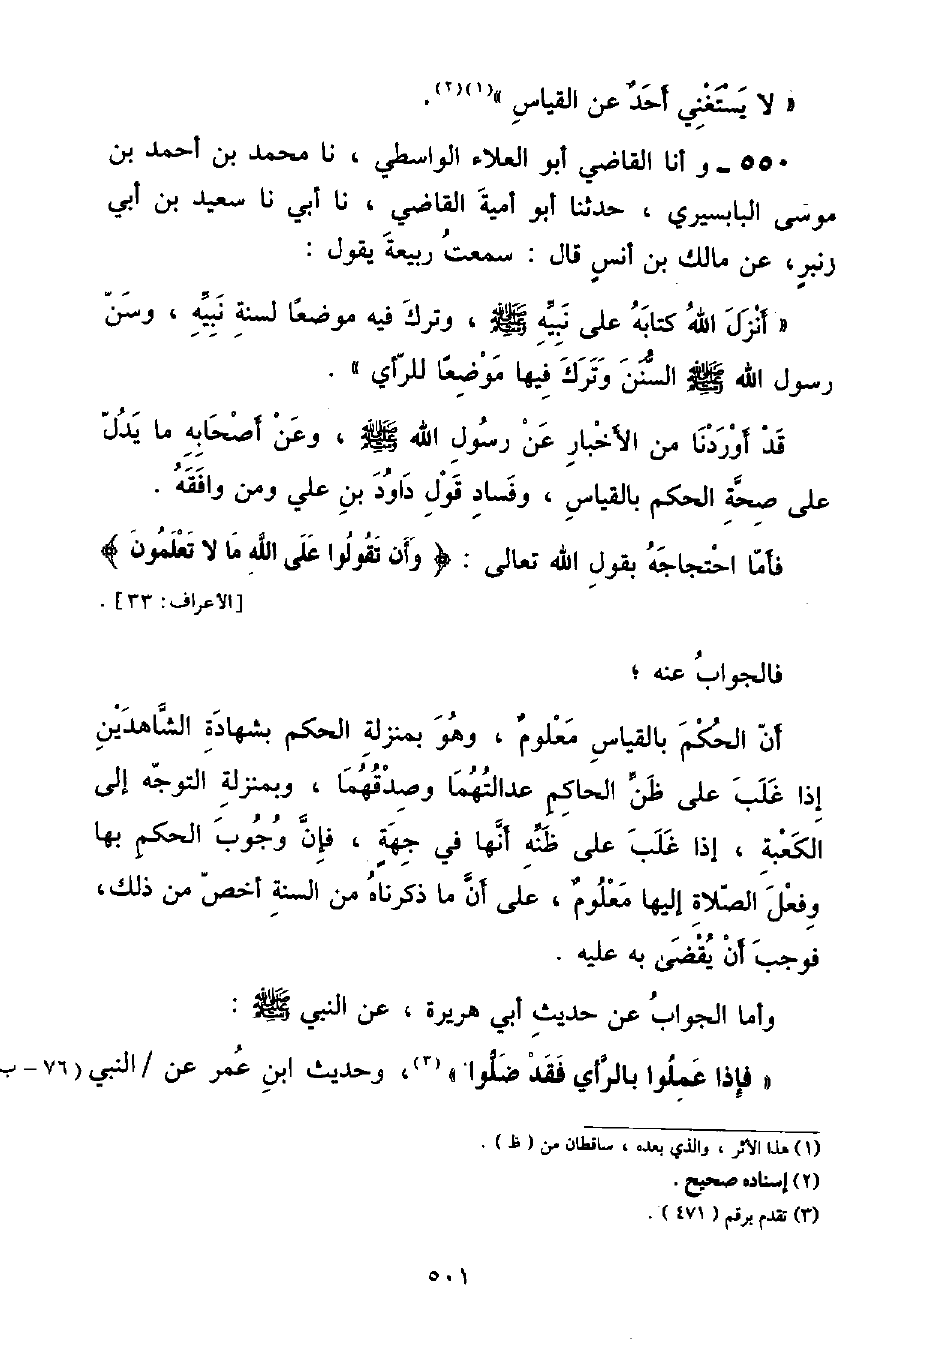 « لا يَسْتَغْنِي أَحَدٌ عن القياسِ »(١)(٢).
٥٥٠ ـ و أنا القاضي أبو العلاء الواسطي ، نا محمد بن أحمد بن
موسى البابسيري ، حدثنا أبو أميةَ القاضي ، نا أبي نا سعيد بن أبي
زنبرٍ، عن مالك بن أنسٍ قال : سمعتُ ربيعةَ يقول :
« أَنْزَلَ اللهُ كتابَهُ على نَبِيِّهِ ﷺ ، وتركَ فيه موضعًا لسنةِ نَبِيِّهِ ، وسَنّ
رسول الله ﷺ السُّنَنَ وَتَرَكَ فِيها مَوْضِعًا للرّأي » .
قَدْ أَوْرَدْنَا من الأَخْبارِ عَنْ رسُولِ الله ﷺ ، وعَنْ أَصْحَابِهِ ما يَدُلّ
على صِحَّةِ الحكم بالقياسِ ، وفَسادِ قَوْلِ دَاوُدَ بنِ علي ومن وافَقَهُ .
فأمّا احْتجاجَهُ بقولِ الله تعالى : ﴿ وَأَن تَقُولُوا عَلَى اللَّهِ مَا لا تَعْلَمُونَ ﴾
[الأعراف: ٣٣] .
فالجوابُ عنه ؛
أنّ الحُكْمَ بالقياسِ مَعْلومٌ ، وهُوَ بمنزلةِ الحكم بشهادَةِ الشَّاهدَيْنِ
إذا غَلَبَ على ظَنِّ الحاكِمِ عدالتُهُمَا وصِدْقُهُمَا ، وبمنزلةِ التوجّه إلى
الكَعْبةِ ، إذا غَلَبَ على ظَنِّهِ أنَّها في جِهَةٍ ، فإنَّ وُجُوبَ الحكمِ بها
وفعْلَ الصّلاةِ إليها مَعْلُومٌ ، على أنَّ ما ذكرناهُ من السنةِ أخصّ من ذلك،
فوجبَ أنْ يُقْضَى به عليه .
وأما الجوابُ عن حديثِ أبي هريرة ، عن النبي ﷺ :
« فإِذا عَمِلُوا بالرَّأي فَقَدْ ضَلُّوا »(٣)، وحديث ابنِ عُمر عن / النبي (٧٦ – ب
(١) هذا الأثر ، والذي بعده ، ساقطان من ( ظ ) .
(٢) إسناده صحيح .
(٣) تقدم برقم ( ٤٧١ ) .
٥٠١